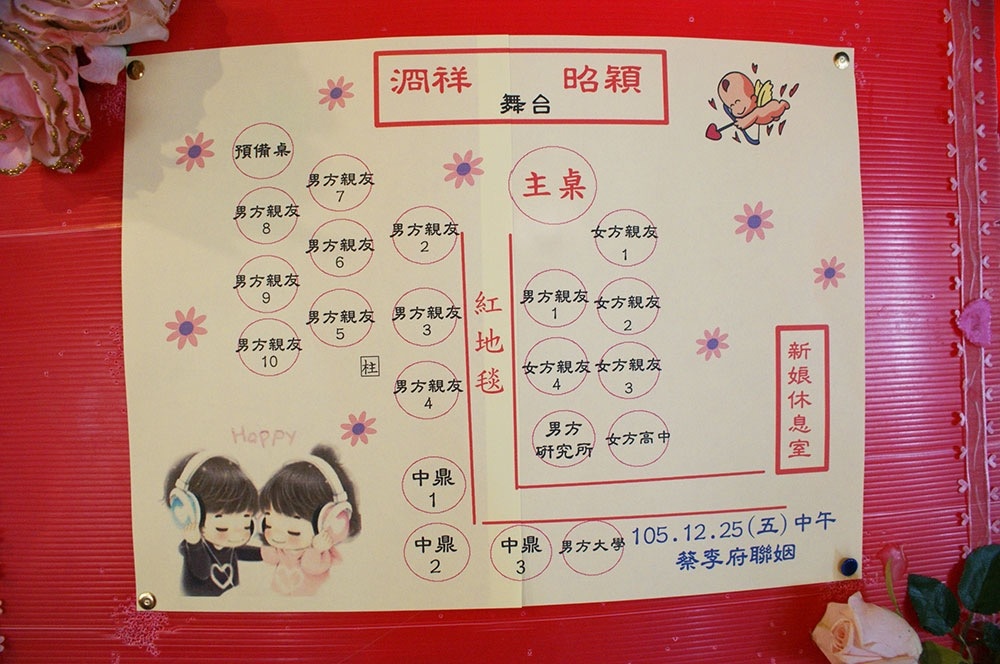 泂祥 昭穎
舞台
預備桌
男方親友
7
主桌
男方親友
8
男方親友
2
女方親友
1
男方親友
6
男方親友
9
男方親友
1
女方親友
2
男方親友
5
男方親友
3
紅地毯
男方親友
10
柱
女方親友
4
女方親友
3
新娘休息室
男方親友
4
男方
研究所
女方高中
Happy
中鼎
1
中鼎
2
中鼎
3
男方大學
105.12.25(五)中午
蔡李府聯姻